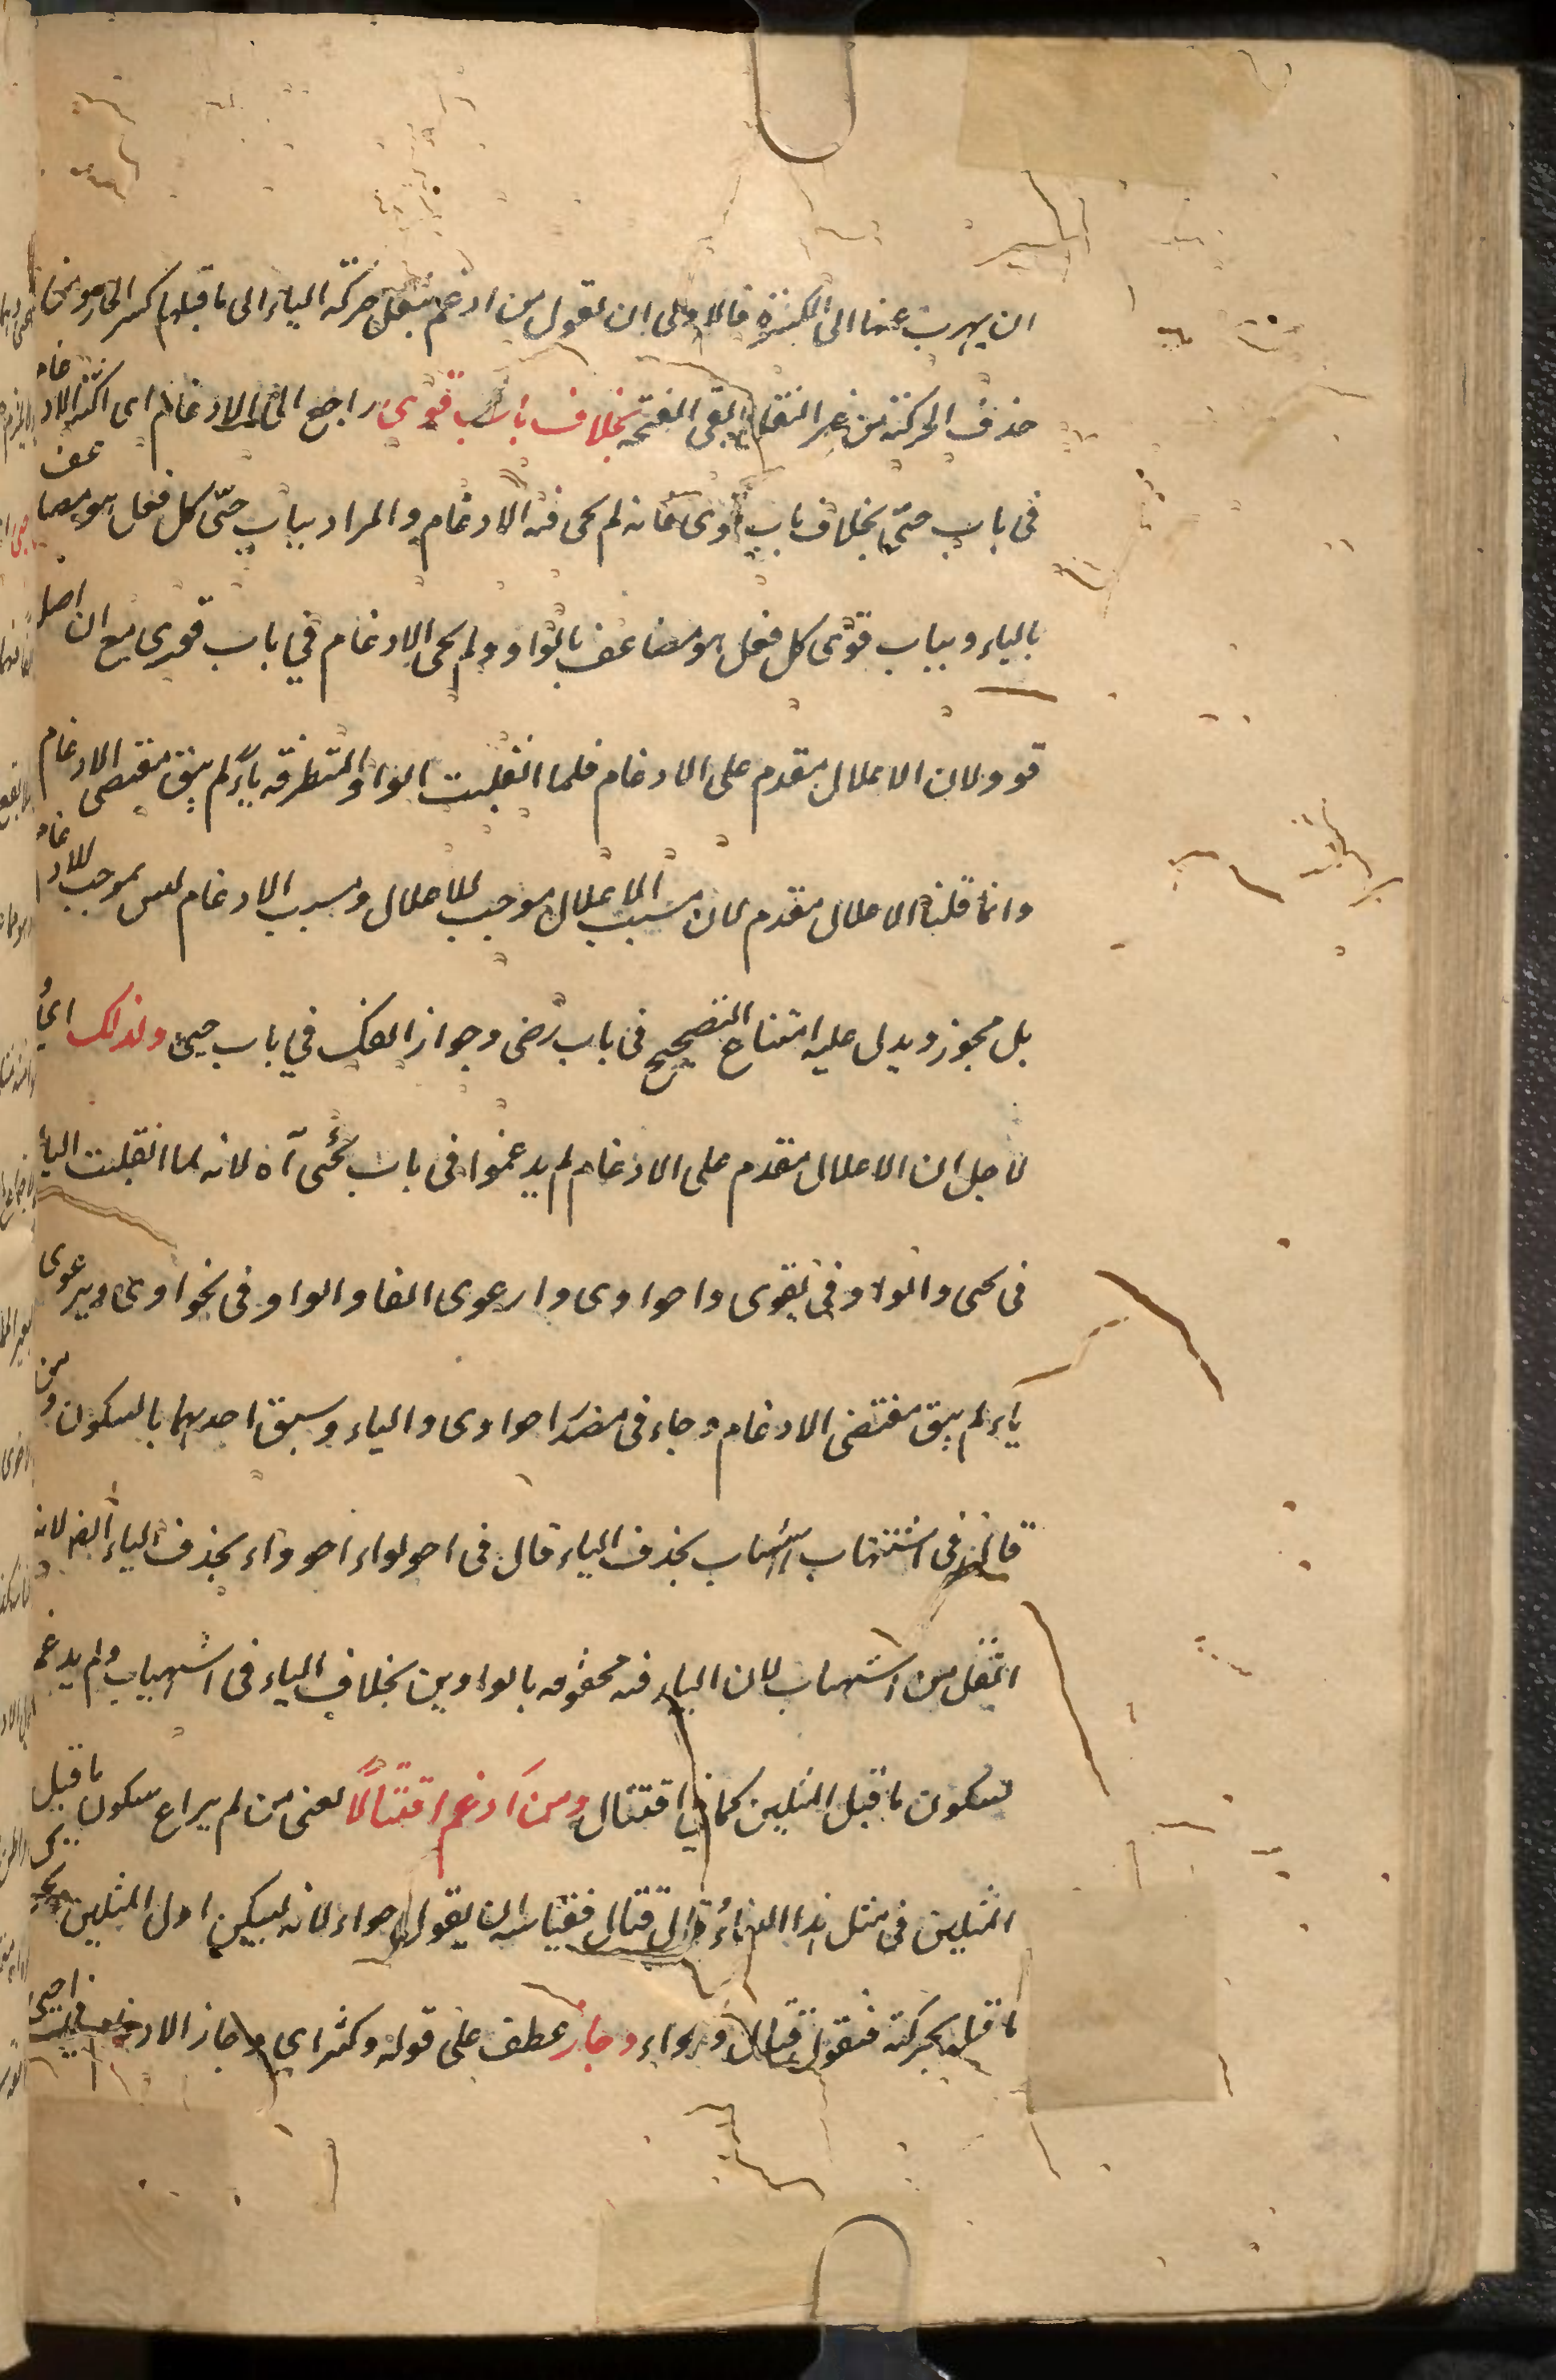 ان يهرب عنها الى الكسرة فالاولى ان نقول من ادغم بنقل حركة الياء الى ما قبلها كسر الحاء ومن
حذف الحركة من غير النقل ابقى الفتحة بخلاف باب قوى راجع الى الادغام اى اكثر الادغام
فى باب حىّ بخلاف باب قوى فانه لم يجى فيه الادغام والمراد بباب حىّ كل فعل هو مضاعف
بالياء وبباب قوى كل فعل هو مضاعف بالواو ولم يجى الادغام فى باب قوى مع ان اصله
قوو ولان الاعلال مقدم على الادغام فلما انقلبت الواو المتطرفة ياءً لم يبق مقتضى الادغام
وانما قلنا الاعلال مقدم لان سبب الاعلال موجب للاعلال وسبب الادغام ليس بموجب للادغام
بل مجوز ويدل عليه امتناع التصحيح فى باب رضى وجواز الفك فى باب حيى ولذلك اى
لاجل ان الاعلال مقدم على الادغام لم يدغموا فى باب يحيى آه لانه لما انقلبت الياء
فى يحيى والواو فى يقوى واحواوى وارعوى الفا والواو فى يحواوى ويرعوى
ياء لم يبق مقتضى الادغام وجاء فى مصدر احواوى والياء وسبق احديهما بالسكون ومن
قال فى اشهيباب اشهباب بحذف الياء قال فى احويواء احوواء بحذف الياء ايضا لانه
اثقل من اشهيباب لان الياء فيه محفوفه بالواوين بخلاف الياء فى اشهيباب ولم يدغم
لسكون ما قبل المثلين كما فى اقتتال ومن ادغم اقتتالًا يعنى من لم يراع سكون ما قبل
المثلين فى مثل هذا البناء وقال قتال فقياسه ان يقول حواء لانه ليسكن اول المثلين
ما قبله بحركته فيقول قتال وحواء وجاز عطف على قوله وكثر اى وجاز الادغام فى احيى